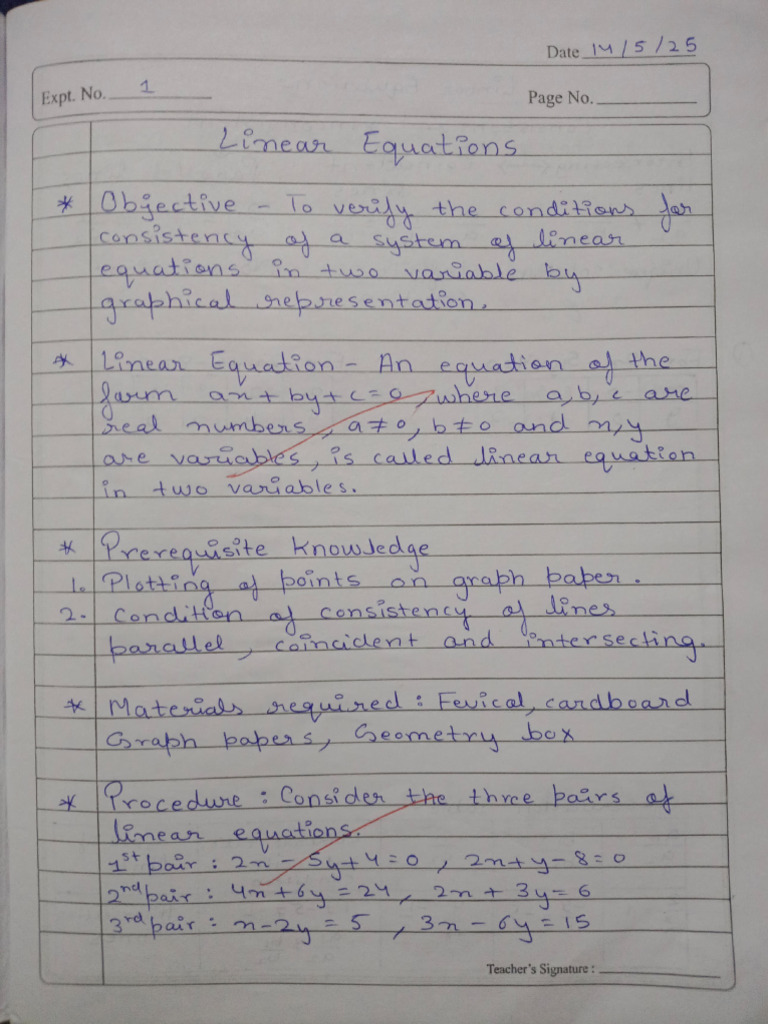 Date 14/5/25
Expt. No. 1
Page No.
Linear Equations
* Objective - To verify the conditions for
consistency of a system of linear
equations in two variable by
graphical representation.
* Linear Equation - An equation of the
form ax + by + c = 0, where a, b, c are
real numbers, a ≠ 0, b ≠ 0 and x, y
are variables, is called linear equation
in two variables.
* Prerequisite Knowledge
1. Plotting of points on graph paper.
2. Condition of consistency of lines
parallel, coincident and intersecting.
* Materials required : Fevicol, cardboard
Graph papers, Geometry box
* Procedure : Consider the three pairs of
linear equations.
1st pair : 2x - 5y + 4 = 0, 2x + y - 8 = 0
2nd pair : 4x + 6y = 24, 2x + 3y = 6
3rd pair : x - 2y = 5, 3x - 6y = 15
Teacher's Signature :